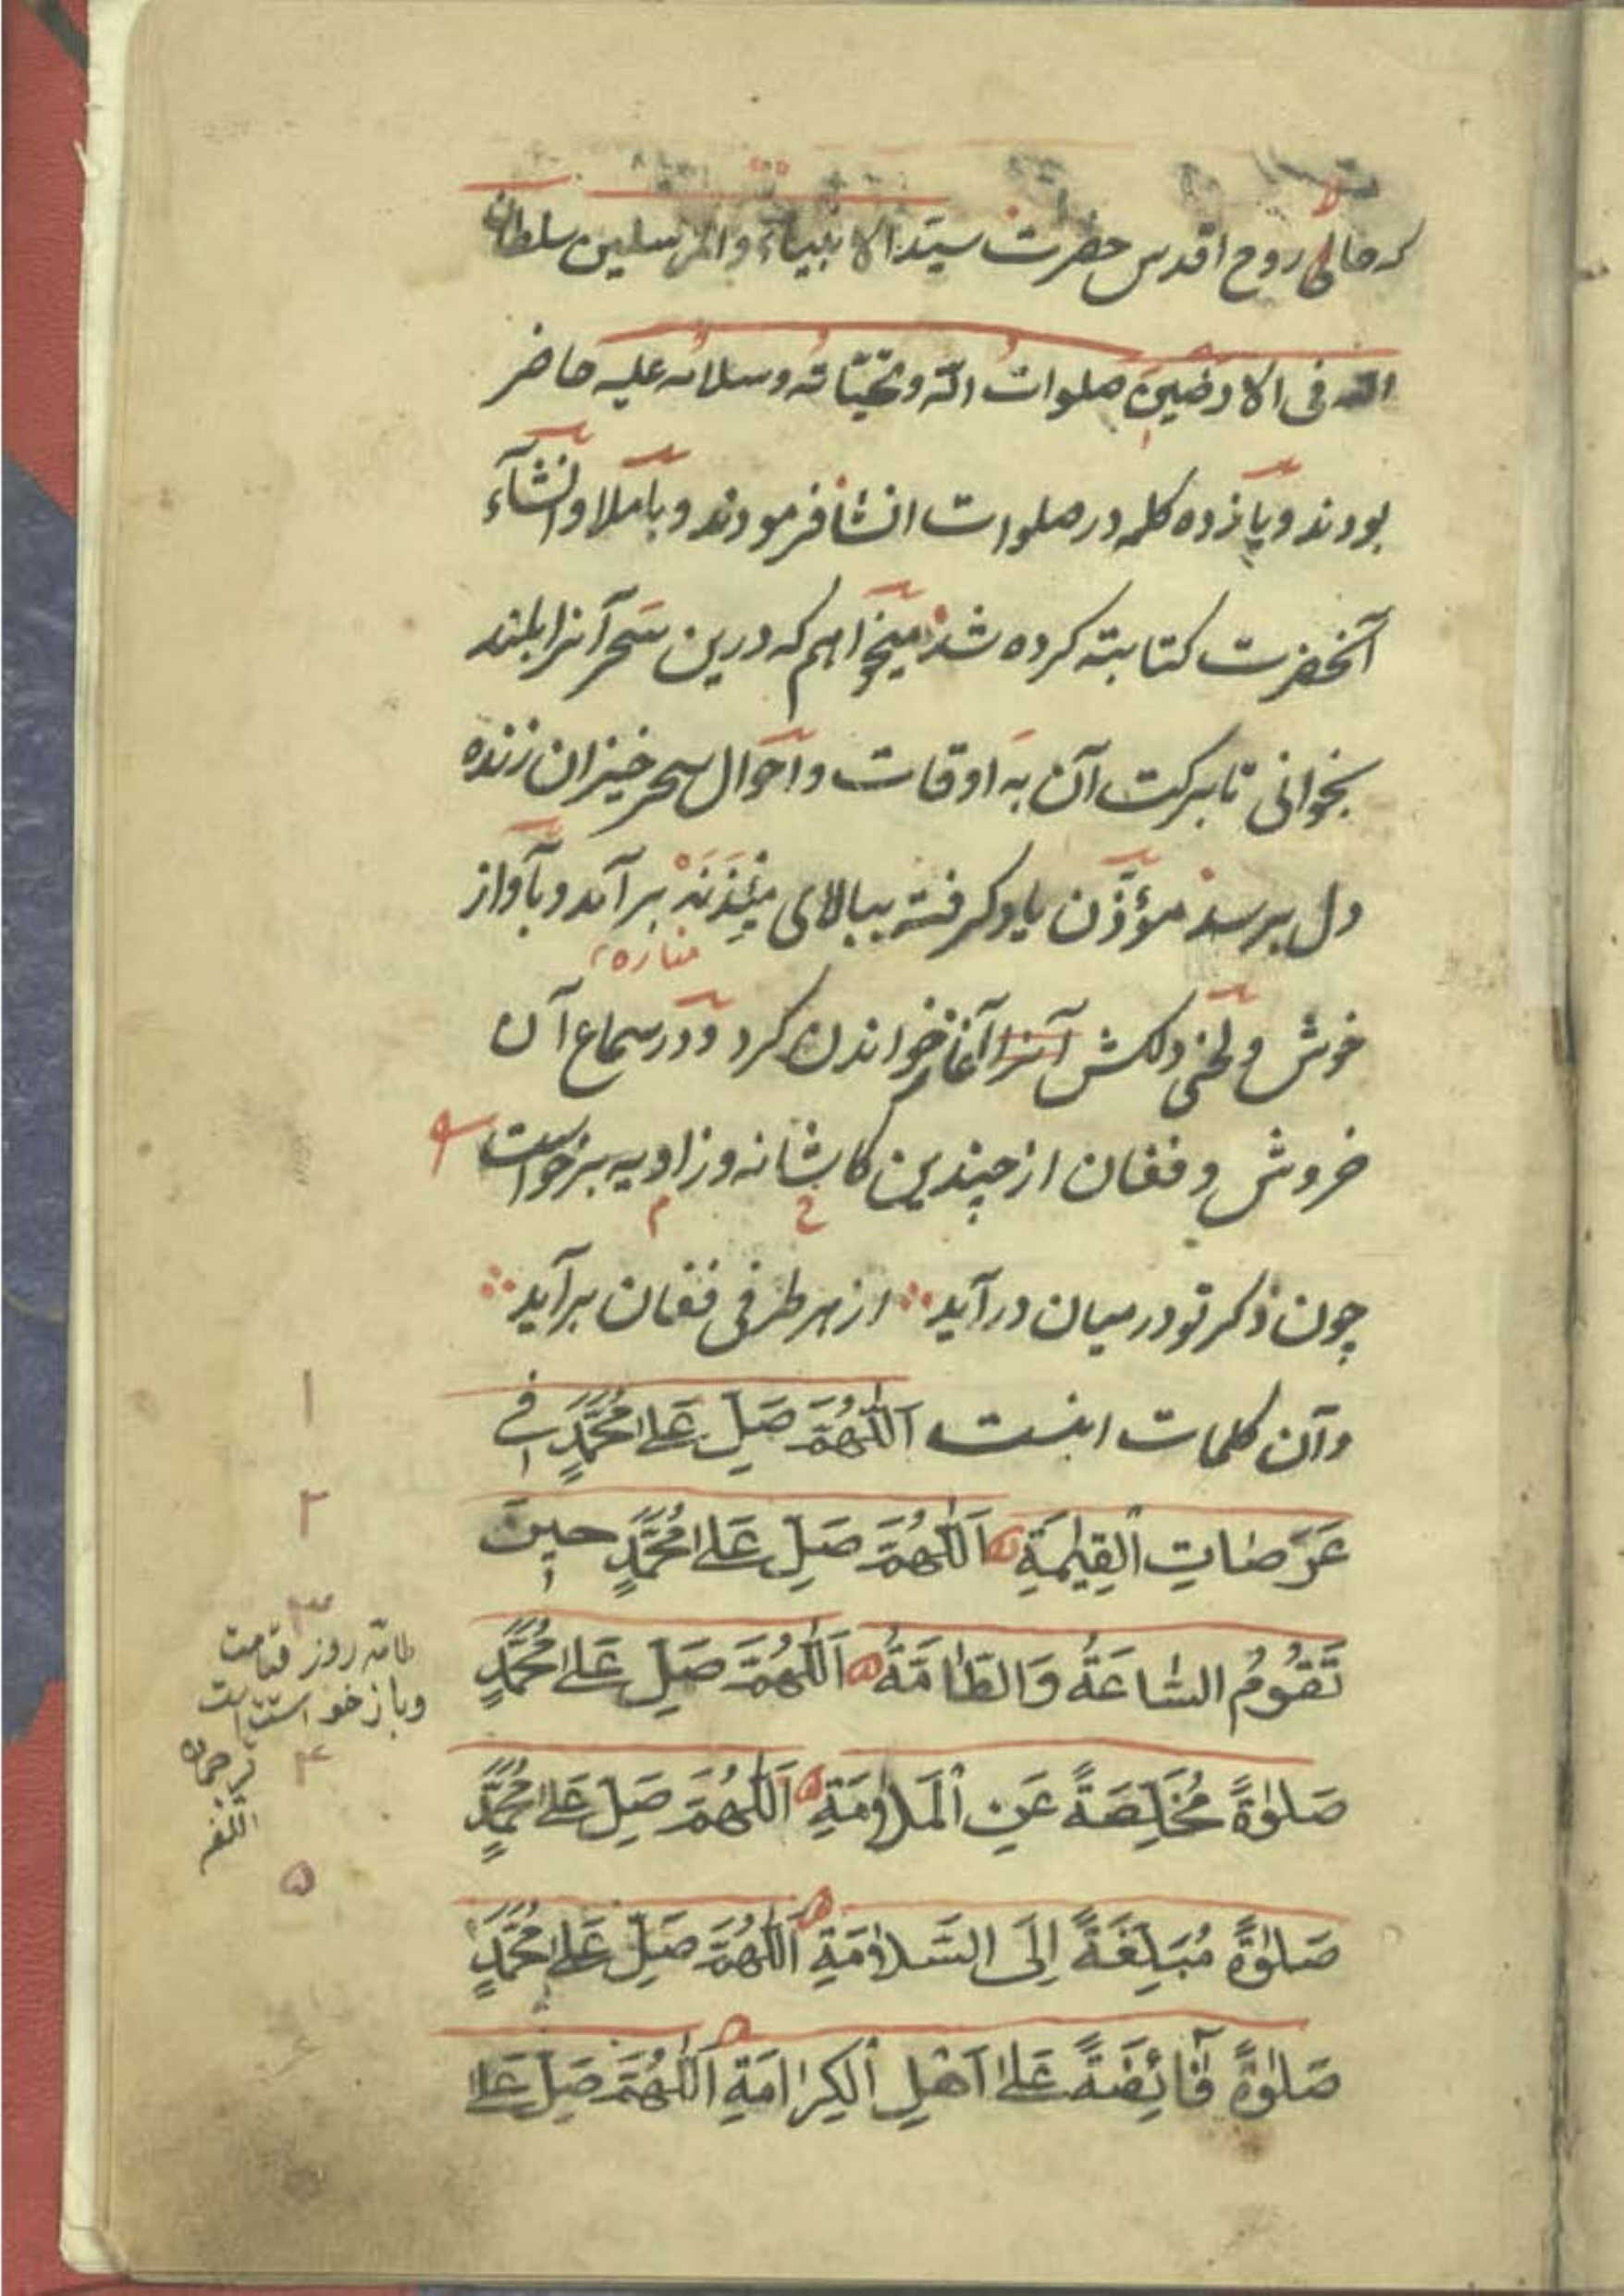 که حالی روح اقدس حضرت سیّد الانبیاء والمرسلین سلطان
الله فی الارضین صلوات الله وتحیّاته وسلامه علیه حاضر
بودند وپانزده کلمه در صلوات انشا فرمودند وباملا وانشآء
آنحضرت کتابته کرده شد میخواهم که درین سحر آنرا بلند
بخوانی تا برکت آن به اوقات واحوال سحر خیزان زنده
دل برسد مؤذّن یاد گرفته ببالای مِئْذَنَه بر آمد وبآواز
مناره
خوش ولحنی دلکش آنرا آغاز خواندن کرد ودر سماع آن
خروش وفغان از چندین کاشانه وزاویه برخواست
چون ذکر تو در میان در آید ∴ از هر طرفی فغان برآید ∴
وآن کلمات اینست اَللّٰهُمَّ صَلِّ عَلٰی مُحَمَّدٍ فی
عَرَصٰاتِ الْقِیٰمَةِ ه اَللّٰهُمَّ صَلِّ عَلٰی مُحَمَّدٍ حینَ
تَقُومُ السّٰاعَةُ وَالطّٰامَّةُ ه اَللّٰهُمَّ صَلِّ عَلٰی مُحَمَّدٍ
صَلٰوةً مُخَلِّصَةً عَنِ الْمَلٰامَةِ ه اَللّٰهُمَّ صَلِّ عَلٰی مُحَمَّدٍ
صَلٰوةً مُبَلِّغَةً اِلَی السَّلٰامَةِ ه اَللّٰهُمَّ صَلِّ عَلٰی مُحَمَّدٍ
صَلٰوةً فٰآئِضَةً عَلٰی اَهْلِ الْکِرٰامَةِ ه اَللّٰهُمَّ صَلِّ عَلٰی
۱
۲
۳
طامّه روز قیامت
وباز خواستست
ترجمان
۴
۵